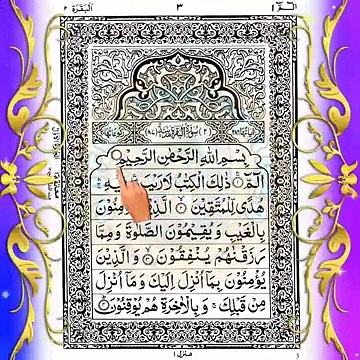 الٓمّٓ ١ ٣ اَلْبَقَرَة ٢
بِسْمِ اللّٰهِ الرَّحْمٰنِ الرَّحِيْمِ
الٓمّٓ ذٰلِكَ الْكِتٰبُ لَا رَيْبَ فِيْهِ
هُدًى لِّلْمُتَّقِيْنَ الَّذِيْنَ يُؤْمِنُوْنَ
بِالْغَيْبِ وَ يُقِيْمُوْنَ الصَّلٰوةَ وَ مِمَّا
رَزَقْنٰهُمْ يُنْفِقُوْنَ وَ الَّذِيْنَ
يُؤْمِنُوْنَ بِمَآ اُنْزِلَ اِلَيْكَ وَ مَآ اُنْزِلَ
مِنْ قَبْلِكَ وَ بِالْاٰخِرَةِ هُمْ يُوْقِنُوْنَ
منزل ١